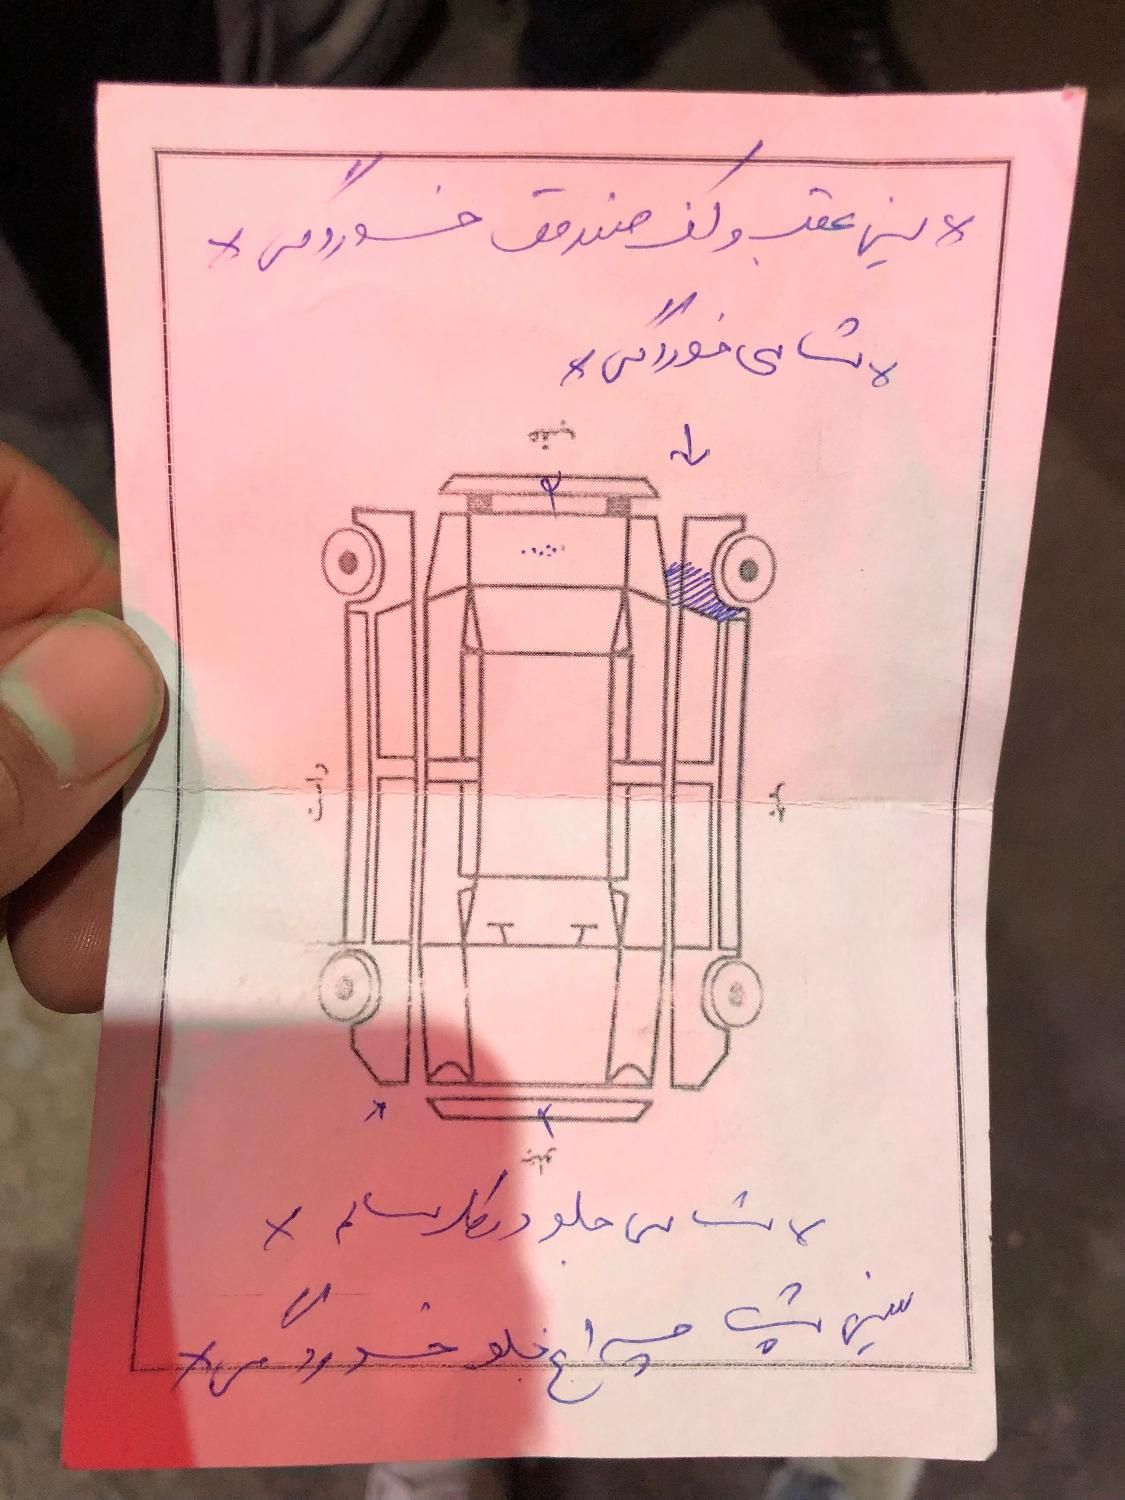 × سینی عقب و کف صندوق خوردگی ×
× شاسی خوردگی ×
عقب
راست
چپ
جلو
× شاسی جلو دو رکاب سالم ×
سینی پشت چراغ جلو خوردگی ×